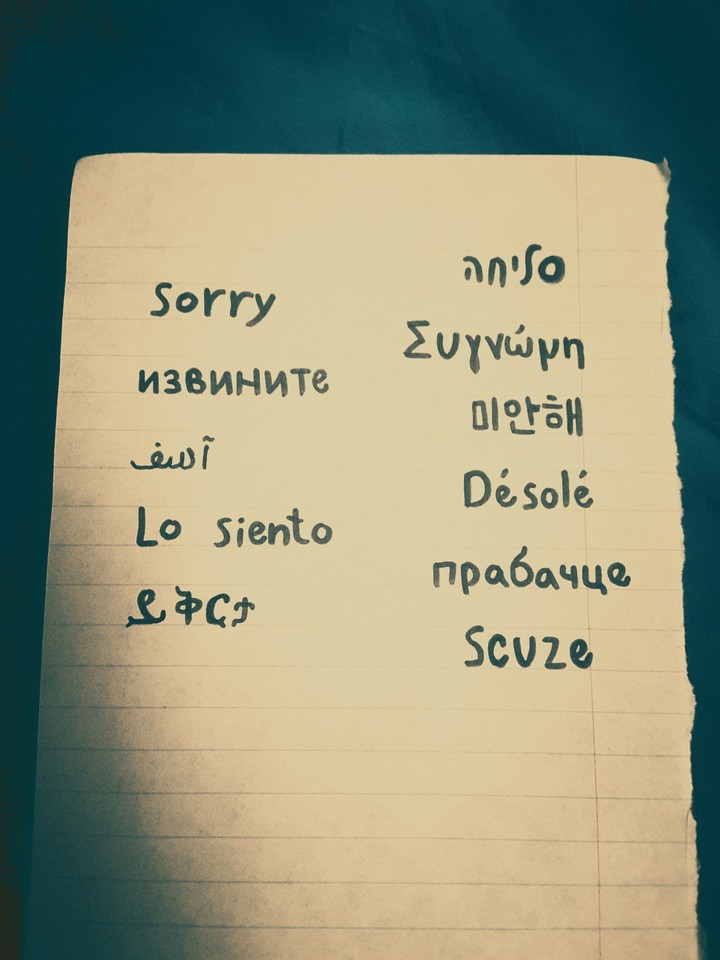 Sorry
извините
آسف
Lo siento
ይቅርታ
סליחה
Συγνώμη
미안해
Désolé
прабачце
Scuze